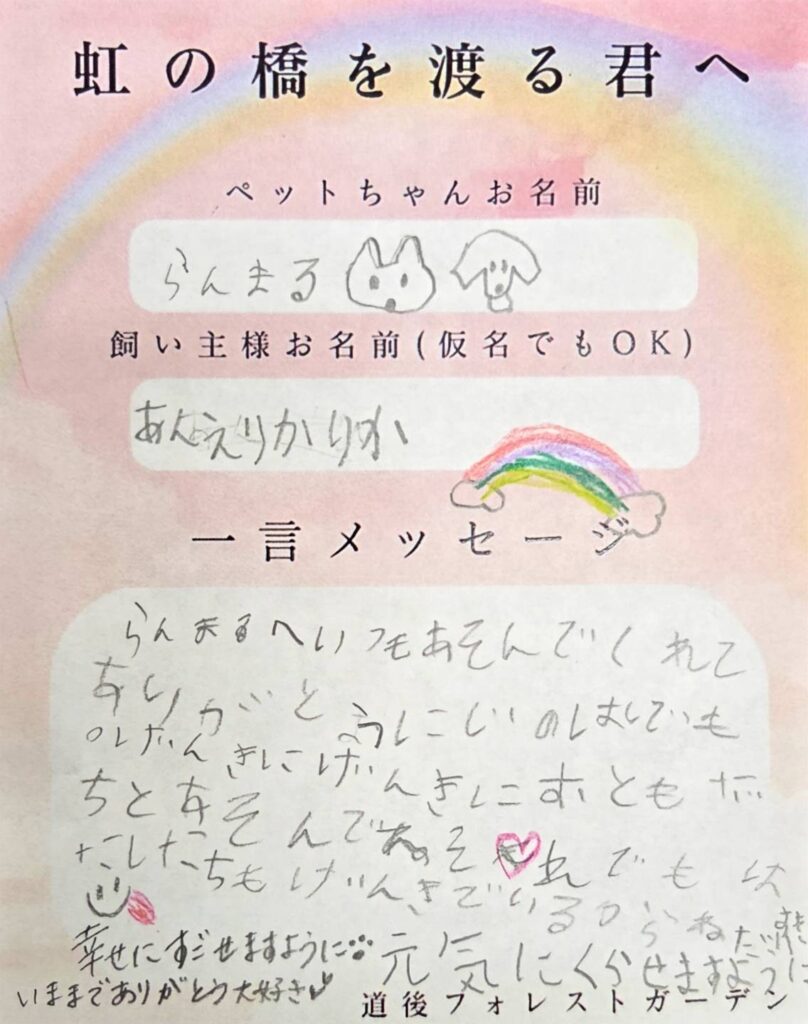 虹の橋を渡る君へ
ペットちゃんお名前
らんまる
飼い主様お名前(仮名でもOK)
あんえりかりか
一言メッセージ
らんまるへいつもあそんでくれて
ありがとうにじいのはしでも
げんきにげんきにおともだ
ちとあそんでね それでも
わたしたちもげんきでいるからね だいすき
幸せにすごせますように 元気にくらせますように
いままでありがとう大好き
道後フォレストガーデン